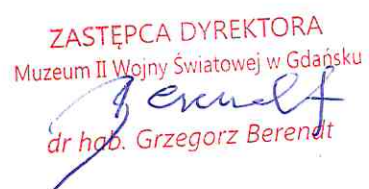 ZASTĘPCA DYREKTORA
Muzeum II Wojny Światowej w Gdańsku
Berendt
dr hab. Grzegorz Berendt